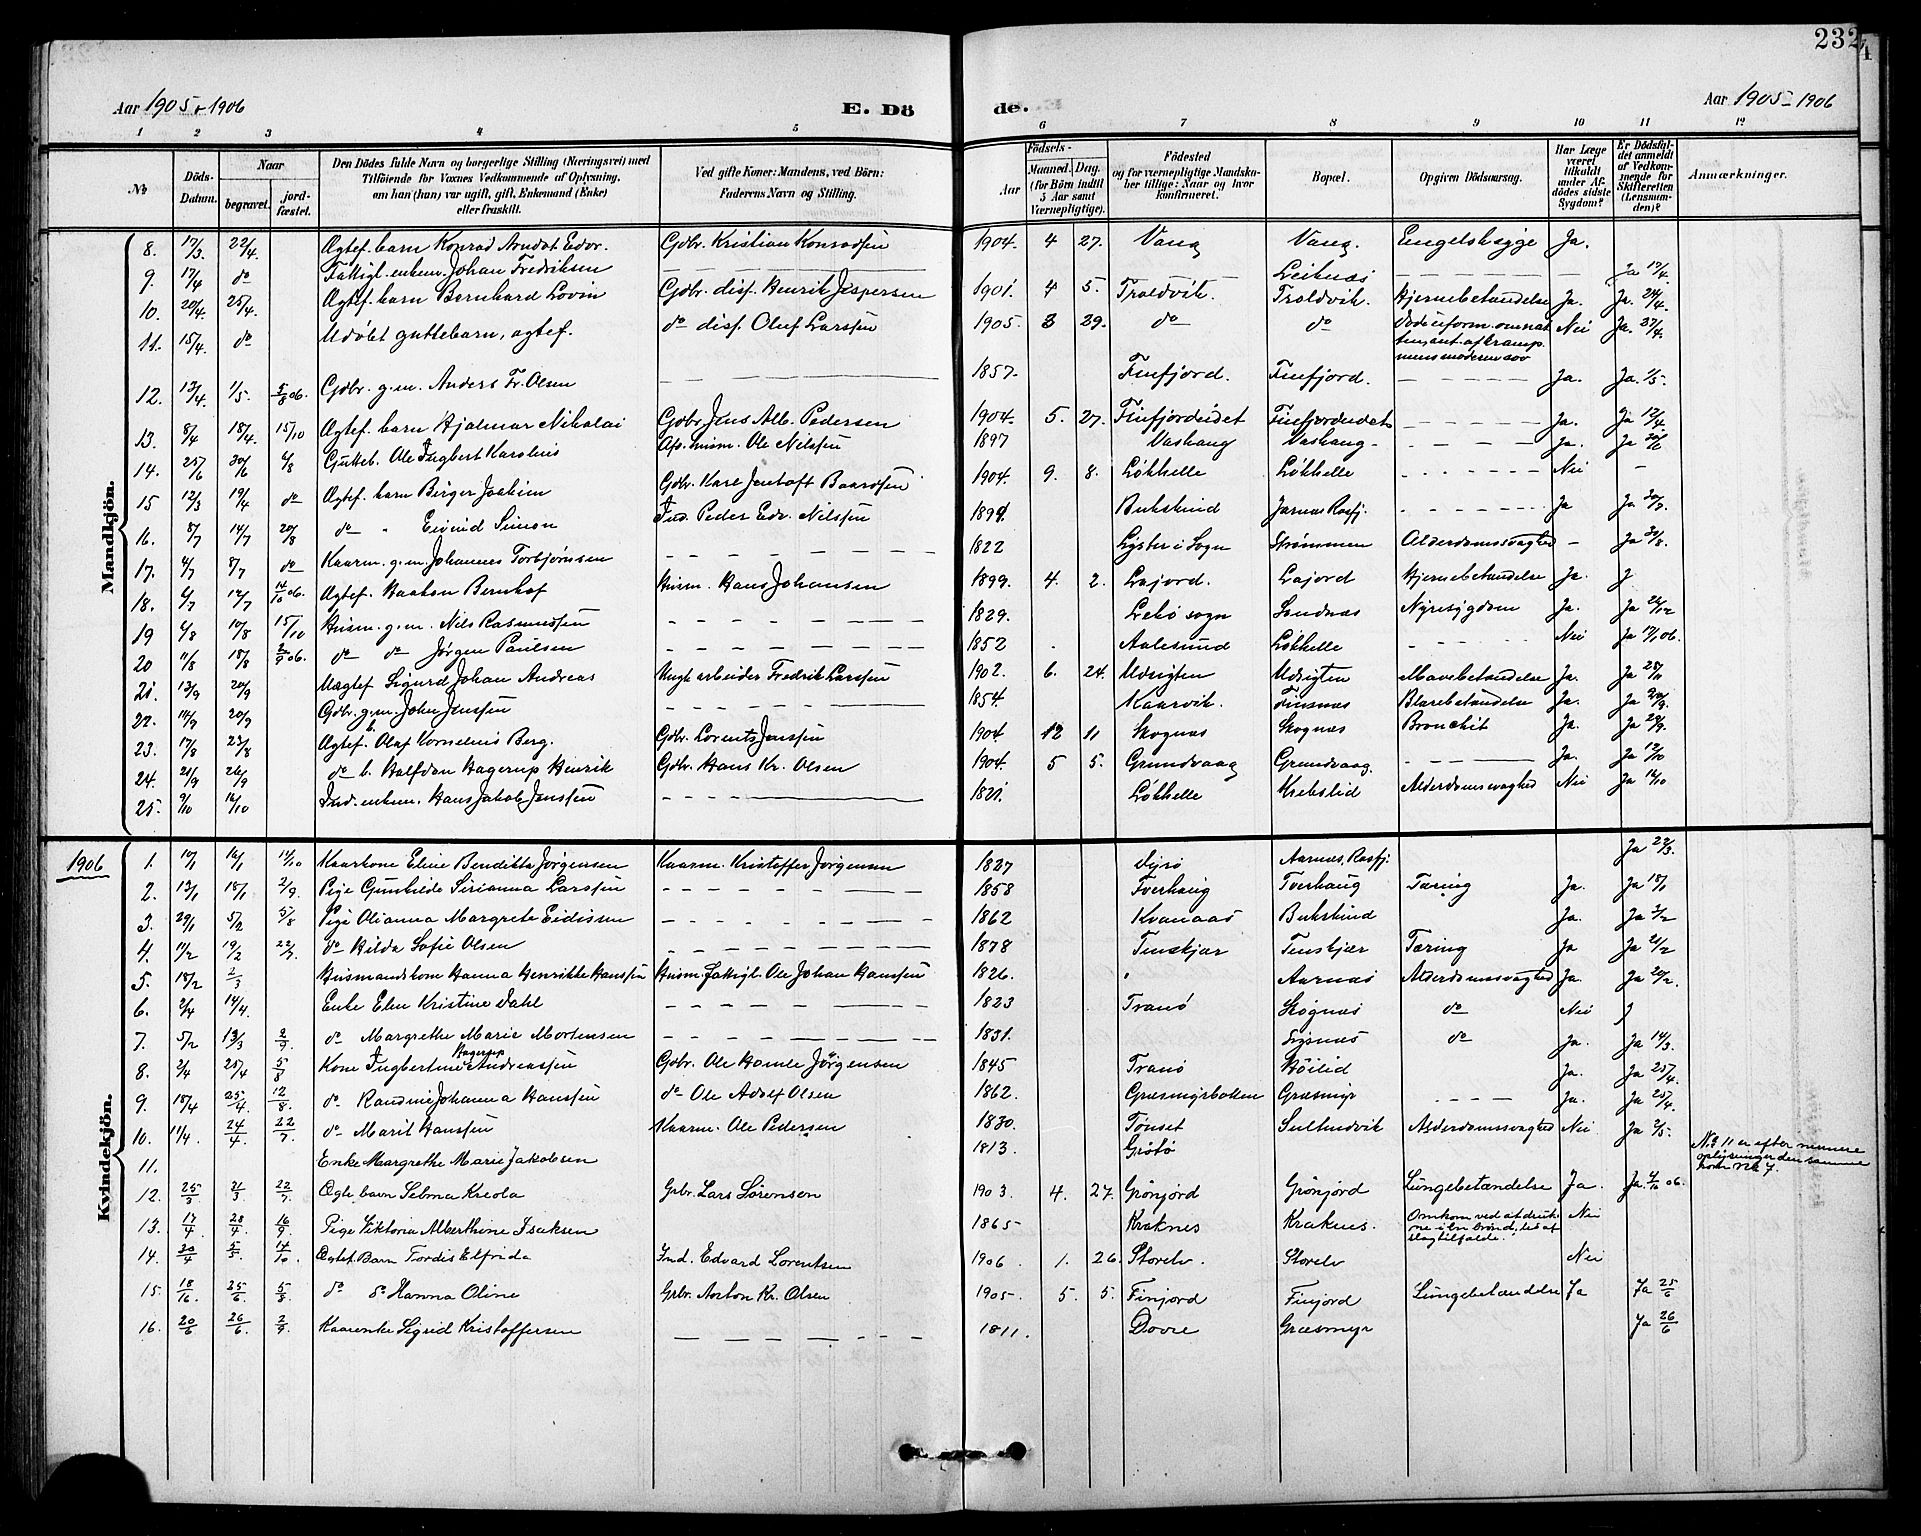 232
Aar 1905 & 1906
E. Dö
de.
Aar 1905 - 1906
1 2 3 4 5 6 7 8 9 10 11 12
No
Döds-Datum.
Naar
begravet.
jordfæstet.
Den Dödes fulde Navn og borgerlige Stilling (Næringsvei) med
Tilföiende for Voxnes Vedkommende af Oplysning,
om han (hun) var ugift, gift, Enkemand (Enke)
eller fraskilt.
Ved gifte Koner: Mandens, ved Börn:
Faderens Navn og Stilling.
Födsels-
Aar
Maaned. Dag.
(for Börn indtil
5 Aar samt
Værnepligtige).
Födested
og for værnepligtige Mandskaber tillige: Naar og hvor
konfirmeret.
Bopæl.
Opgiven Dödsaarsag.
Har Læge været tilkaldt under Afdödes sidste Sygdom?
Er Dödsfaldet anmeldt af Vedkommende for Skifteretten (Lensmanden)?
Anmærkninger.
Mandkjön.
8. 17/3 22/4. Ægtef. barn Konrad Arndat Edv. Gdbr. Kristian Konradsen 1904. 4 27. Vang Vang. Engelsksyge Ja.
9. 17/4 do Fattigl. enkem. Johan Fredriksen Leiknæs Ja 17/4.
10. 20/4. 25/4. Ægtef. barn Bernhard Lovin Gdbr. disp. Henrik Jespersen 1901. 4 5. Troldvik. Troldvik. Hjernebetændelse Ja. Ja. 24/4.
11. 15/4. do Udöbt guttebarn, ægtef. do disp. Oluf Larssen 1905. 3 29. do do Nei Ja. 27/4.
12. 13/4. 1/5. 5/8 06. Gdbr. g.m. Anders Fr. Olsen 1857. Finfjord. Finfjord. Ja. Ja. 2/5.
13. 8/4 18/4. 15/10 Ægtef. barn Hjalmar Nikolai Gdbr. Jens Alb. Pedersen 1904. 5. 27. Finfjordeidet Finfjordeidet Ja. Ja 12/4.
14. 25/6 30/6 6/8 Gutteb. Ole Ingbert Karolius Ole Nilssen 1897 Vashaug Vashaug Ja. Ja 30/6
15 12/3 19/4 do Ægtef. barn Birger Joakim Gdbr. Karl Jentoft Baardsen 1904. 9. 8. Lökhelle Lökhelle Nei
16. 8/7 14/7 20/8 do " Eivind Simon Ind. Peder Edv. Nilssen 1899. Bukskind Jarnæs Rosfj. Ja Ja 30/7.
17. 4/7 8/7 do Kaarm. g.m. Johannes Torbjørnsen 1822 Lyster i Sogn Strømmen Alderdomssvaghed - Ja 30/8.
18. 6/7 12/7 14/10 06. Ægtef. Haakon Bernhof Husm. Hans Johansen 1899. 4. 2. Lajord. Lajord Hjernebetændelse Ja. J
19 6/8 10/8 15/10 Husm. g.m. Nils Rasmussen 1829. Lebö sogn Sandnæs Nyresygdom Ja. Ja 22/12
20 11/8 18/8 2/9 06. do do Jørgen Paulsen 1852 Aalesund Lökhelle Nei Ja 17/1 06.
21. 13/9 20/9 Uægtef Sigurd Johan Andreas Ungk. arbeider Fredrik Larssen 1902. 6. 24. Udsigten Udsigten Mavebetændelse Ja. Ja 25/11
22. 14/9 20/9 Gdbr. g.m. John Jenssen 1854. Kaarvik. Finsnæs Blærebetændelse Ja. Ja 20/9.
23. 17/8 23/8 Ægtef. b. Olaf Kornelius Berg. Gdbr. Lorents Jenssen 1904 12 11 Skognæs Skognæs Bronchit Ja. Ja 29/9.
24. 21/9 26/9 do b. Halfdan Hagerup Henrik Gdbr. Hans Kr. Olsen 1904. 5 5. Grundvaag Grundvaag. Ja. Ja 12/10
25. 9/10 16/10 Ind. enkem. Hans Jakob Jenssen 1821. Lökhelle Krebslid Alderdomssvaghed Nei Ja 16/10
1906
Kvindekjön.
1. 10/1 16/1 14/10 Kaarkone Eline Bendikta Jörgensen Kaarm. Kristoffer Jörgensen 1827 Dyrö Aarnæs, Rosfj. Ja 22/3.
2. 13/1 18/1 2/9. Pige Gunhilde Sirianna Larssen 1858 Tverhaug Tverhaug Tæring Ja. Ja 18/1
3. 29/1 5/2 5/8 Pige Olianna Margrete Eidissen 1862 Kvanaas Bukskind Ja. Ja 3/2
4. 11/2 19/2 22/7 do Hilda Sofie Olsen 1878 Tenskjær Tenskjær Tæring Ja Ja 21/2
5. 18/2 2/3 Husmandskone Hanna Henrikke Hanssen Husm. fattigl. Ole Johan Hanssen 1826. " Aarnæs Alderdomssvaghed Ja. Ja 20/2.
6. 2/4 14/4. Enke Elen Kristine Dahl 1823 Tranö Skognæs do Nei J
7. 5/2 13/3 2/9. do Margrethe Marie Mortensen 1831. Sysnæs do Ja. Ja 14/3.
8. 2/4 25/4 5/8 Kone Ingbertine Hagerup Andreassen Gdbr. Ole Hamle Jörgensen 1845 Tranö Höilid Ja. Ja 25/4.
9. 18/4 25/4. 12/8. do Randine Johanna Hanssen do Ole Adolf Olsen 1862. Græsmyrbotten Græsmyr Ja. Ja 25/4.
10. 11/4. 24/4 22/7 do Marit Hanssen Kaarm. Ole Pedersen 1830 Tönset Sultindvik Alderdomssvaghed Nei Ja 2/5.
11. Enke Margrethe Marie Jakobsen 1813. Grötö No 11 er efter nærmere
oplysninger den samme
som No 7.
12. 25/3 2/3 22/7 Ægte barn Selma Kreola Grbr. Lars Sörenson 1903. 4. 27. Grönjord Grönjord Lungebetændelse Ja. Ja. 4/10 06.
13. 17/4 28/4. 16/9 Pige Viktoria Alberthine Isaksen 1865- Kraknes Kraknes. Omkom ved at drukne i en brönd, let af
slagtilfælde. Nei
14. 20/4 5/5. 14/10. Ægtef. Barn Tordis Elfrida Ind. Edvard Lorentsen 1906 1. 26. Storelv. Storelv Nei
15. 18/16. 25/6. 5/8 do do Hanna Oline Grbr. Anton Kr. Olsen 1905. 5. 5. Finjord Finjord Lungebetændelse Ja Ja 25/6
16. 20/6 26/6. 2/9 Kaarenke Sigrid Kristoffersen 1811. Dovre Græsmyr Ja 26/6